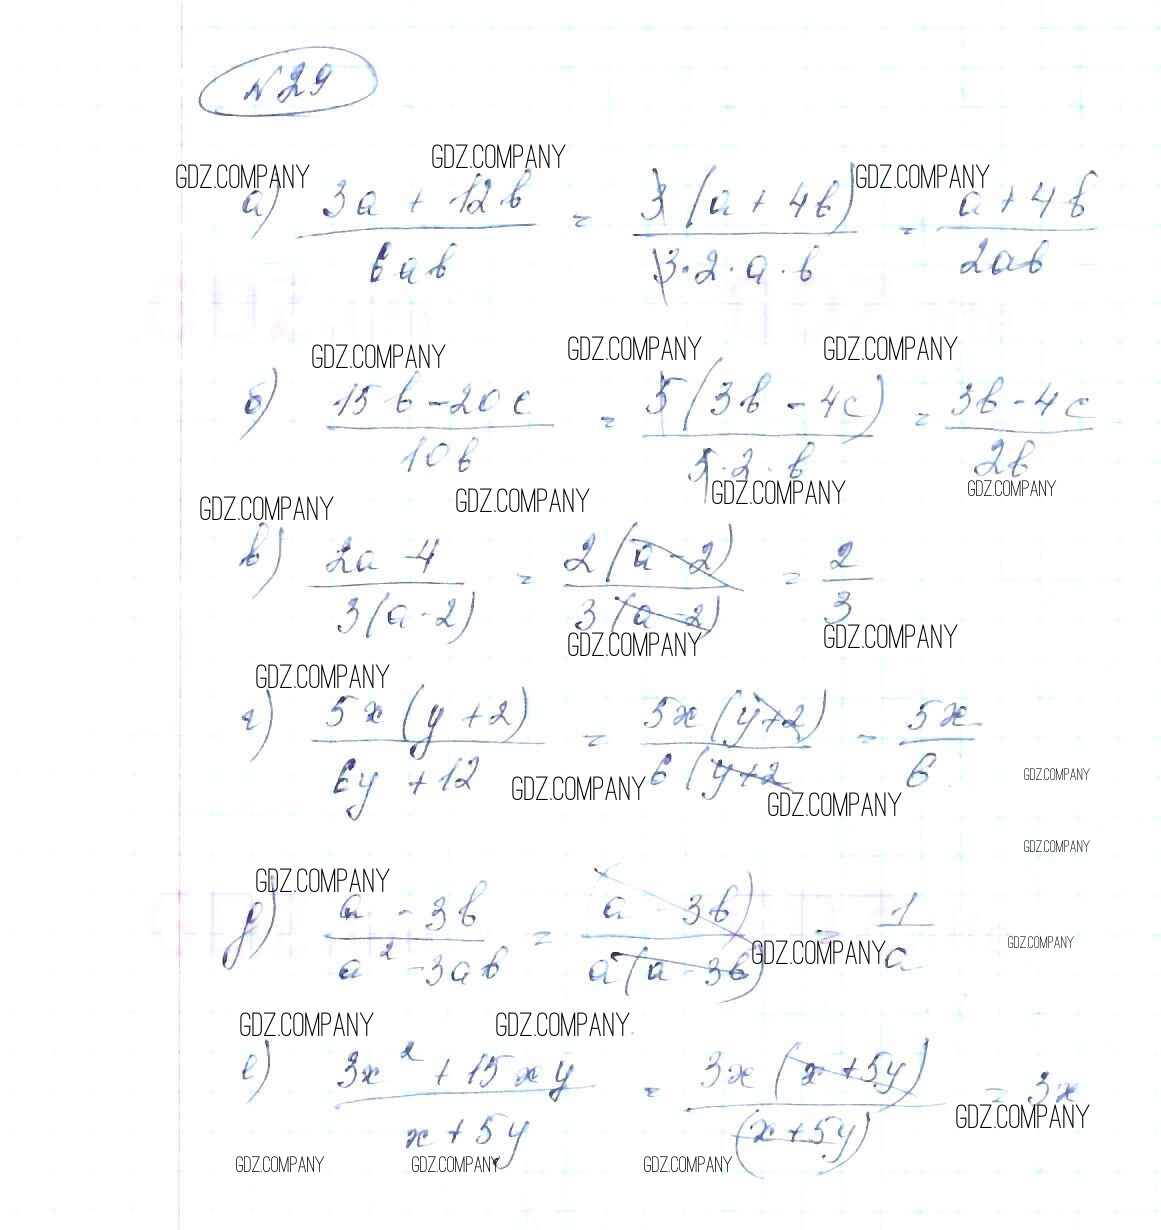 №29
GDZ.COMPANY GDZ.COMPANY GDZ.COMPANY
а) (3a + 12b)/(6ab) = (3(a + 4b))/(3·2·a·b) = (a + 4b)/(2ab)
GDZ.COMPANY GDZ.COMPANY GDZ.COMPANY
б) (15b - 20c)/(10b) = (5(3b - 4c))/(5·2·b) = (3b - 4c)/(2b)
GDZ.COMPANY GDZ.COMPANY GDZ.COMPANY GDZ.COMPANY
в) (2a - 4)/(3(a - 2)) = (2(a - 2))/(3(a - 2)) = 2/3
GDZ.COMPANY GDZ.COMPANY
GDZ.COMPANY
г) (5x(y + 2))/(6y + 12) = (5x(y + 2))/(6(y + 2) = 5x/6
GDZ.COMPANY GDZ.COMPANY GDZ.COMPANY
GDZ.COMPANY
GDZ.COMPANY
д) (a - 3b)/(a² - 3ab) = (a - 3b)/(a(a - 3b)) = 1/a
GDZ.COMPANY GDZ.COMPANY
GDZ.COMPANY GDZ.COMPANY
е) (3x² + 15xy)/(x + 5y) = (3x(x + 5y))/((x + 5y)) = 3x
GDZ.COMPANY
GDZ.COMPANY GDZ.COMPANY GDZ.COMPANY